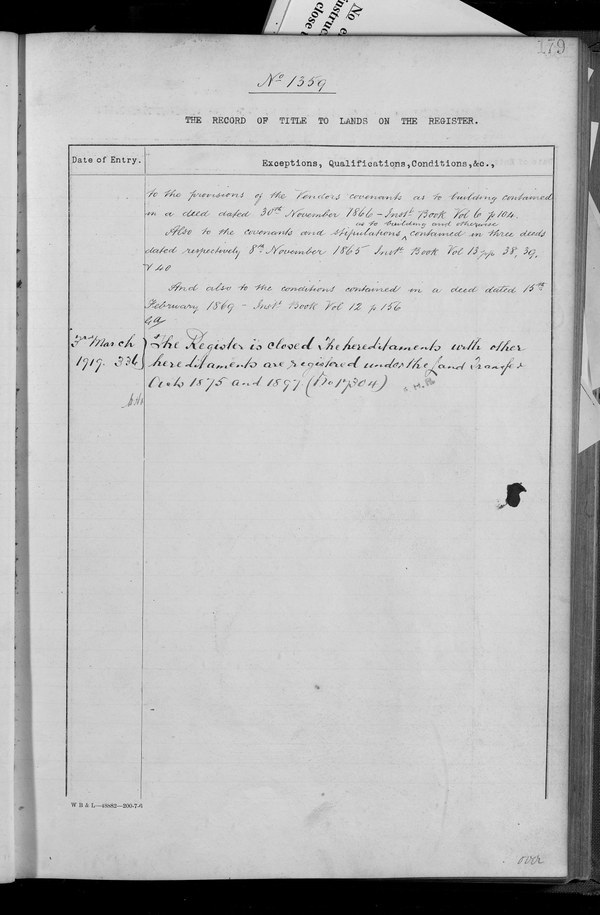 No
instruc
close
179
No 1359
THE RECORD OF TITLE TO LANDS ON THE REGISTER.
Date of Entry.
Exceptions, Qualifications, Conditions, &c.,
to the provisions of the Vendors covenants as to building contained
in a deed dated 30th November 1866 - Inst. Book Vol 6 p 104.
as to building and otherwise
Also to the covenants and stipulations contained in three deeds
dated respectively 8th November 1865 Inst. Book Vol 13 pp 38, 39,
& 40
And also to the conditions contained in a deed dated 15th
February 1869 - Inst. Book Vol 12 p 156
3rd March
1919. 336
The Register is closed The hereditaments with other
hereditaments are registered under the Land Transfer
Acts 1875 and 1897
W B & L—48882—200-7-
over